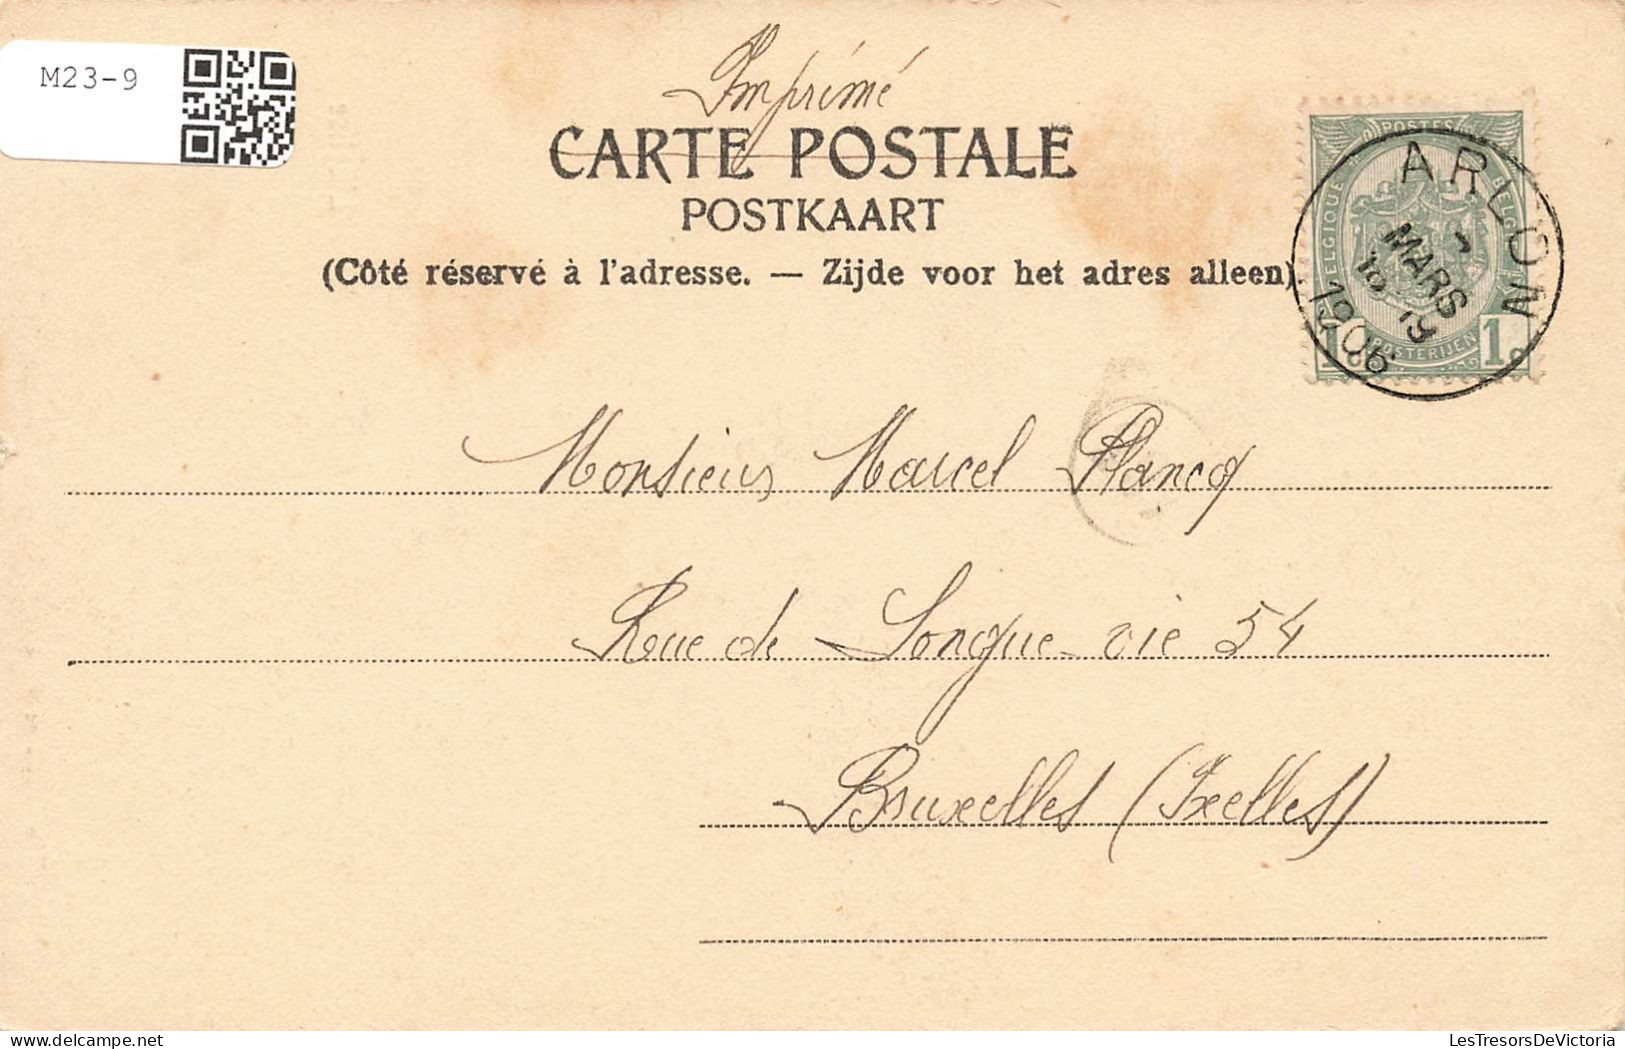 M23-9
Imprimé
CARTE POSTALE
POSTKAART
(Côté réservé à l'adresse. — Zijde voor het adres alleen)
POSTES
BELGIQUE
BELGIË
POSTERIJEN
1c 1c
ARLON
MARS
1906
Monsieur Marcel Plancq
Rue de Longue vie 54
Bruxelles (Ixelles)
LesTresorsDeVictoria